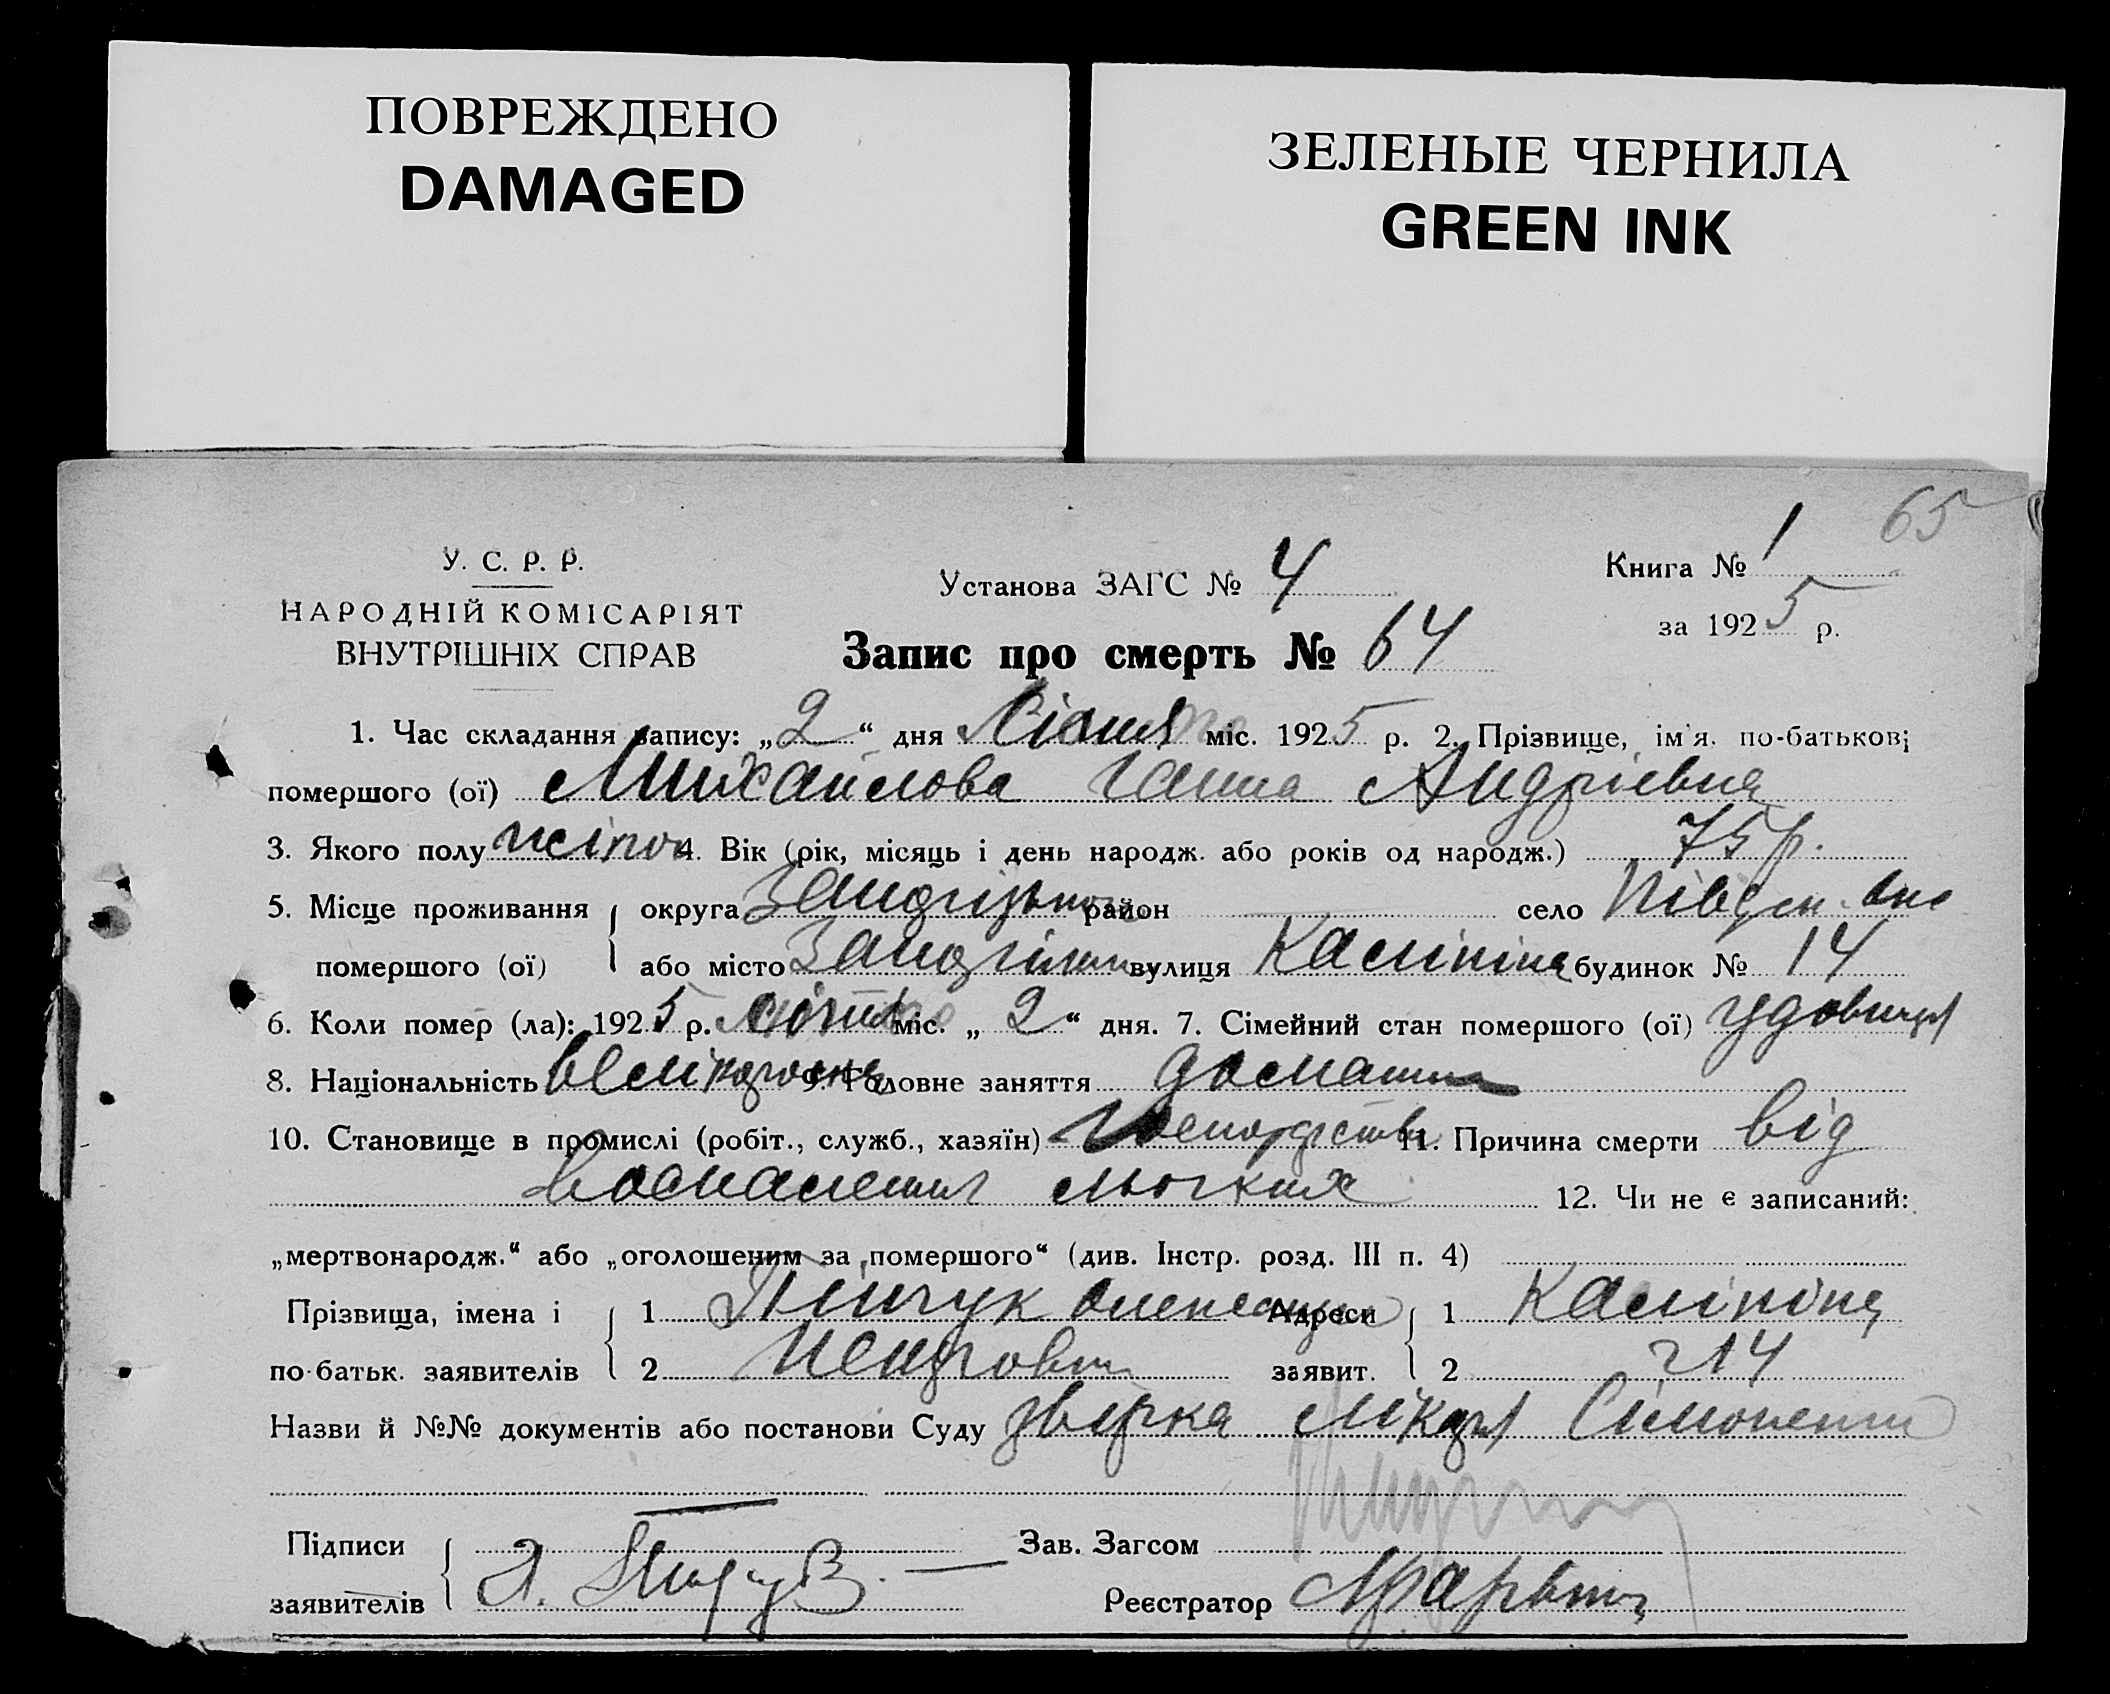 ПОВРЕЖДЕНО
DAMAGED
ЗЕЛЕНЫЕ ЧЕРНИЛА
GREEN INK
65
У. С. Р. Р.
НАРОДНІЙ КОМІСАРІЯТ
ВНУТРІШНІХ СПРАВ
Установа ЗАГС № 4
Книга № 1
за 1925 р.
Запис про смерть № 64
1. Час складання запису: „2“ дня міс. 1925 р. 2. Прізвище, ім'я, по-батькові
помершого (ої) Михайлова Ганна Андріевна
3. Якого полу жіноч 4. Вік (рік, місяць і день народж. або років од народж.) 75 р.
5. Місце проживання округа район село
помершого (ої) або місто вулиця Калініна будинок № 14
6. Коли помер (ла): 1925 р. міс. „2“ дня. 7. Сімейний стан помершого (ої) удовиця
8. Національність 9. Головне заняття домашн
10. Становище в промислі (робіт., служб., хазяїн) 11. Причина смерти від
воспаления льогких 12. Чи не є записаний:
„мертвонародж.“ або „оголошеним за помершого“ (див. Інстр. розд. III п. 4)
Прізвища, імена і 1 Адреси 1 Калініна
по-батьк. заявителів 2 заявит. 2 14
Назви й №№ документів або постанови Суду лікаря
Підписи Зав. Загсом
заявителів Реєстратор